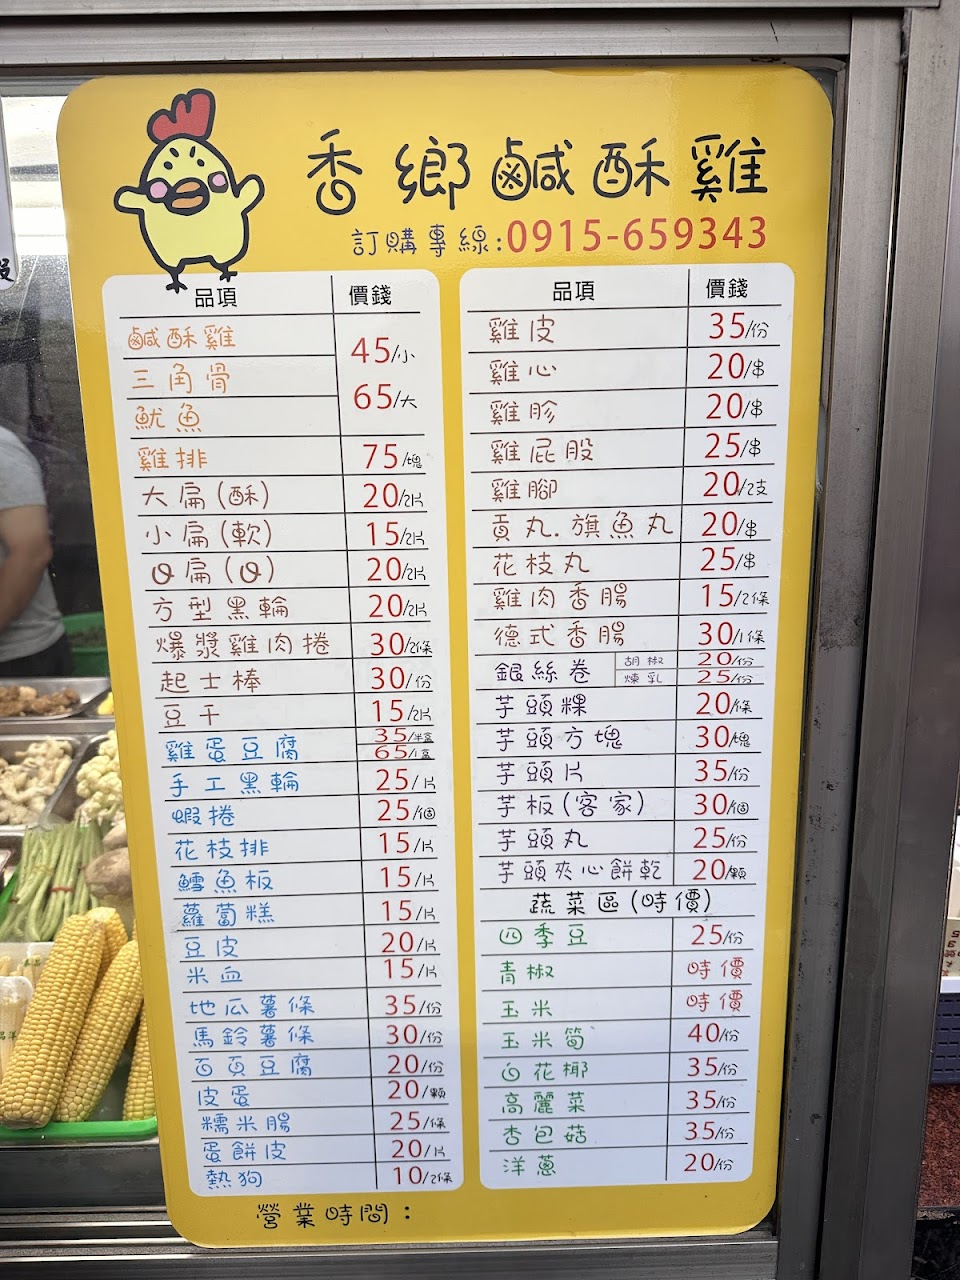 香鄉鹹酥雞
訂購專線:0915-659343
品項 價錢
鹹酥雞
三角骨
魷魚
45/小
65/大
雞排 75/塊
大扁(酥) 20/2片
小扁(軟) 15/2片
Q扁(Q) 20/2片
方型黑輪 20/2片
爆漿雞肉捲 30/2條
起士棒 30/份
豆干 15/2片
雞蛋豆腐 35/半盒 65/1盒
手工黑輪 25/片
蝦捲 25/個
花枝排 15/片
鱈魚板 15/片
蘿蔔糕 15/片
豆皮 20/片
米血 15/片
地瓜薯條 35/份
馬鈴薯條 30/份
百頁豆腐 20/份
皮蛋 20/顆
糯米腸 25/條
蛋餅皮 20/片
熱狗 10/2條
品項 價錢
雞皮 35/份
雞心 20/串
雞胗 20/串
雞屁股 25/串
雞腳 20/2支
貢丸.旗魚丸 20/串
花枝丸 25/串
雞肉香腸 15/2條
德式香腸 30/1條
銀絲卷 胡椒 20/份 煉乳 25/份
芋頭粿 20/條
芋頭方塊 30/塊
芋頭片 35/份
芋板(客家) 30/個
芋頭丸 25/份
芋頭夾心餅乾 20/顆
蔬菜區(時價)
四季豆 25/份
青椒 時價
玉米 時價
玉米筍 40/份
白花椰 35/份
高麗菜 35/份
杏包菇 35/份
洋蔥 20/份
營業時間：